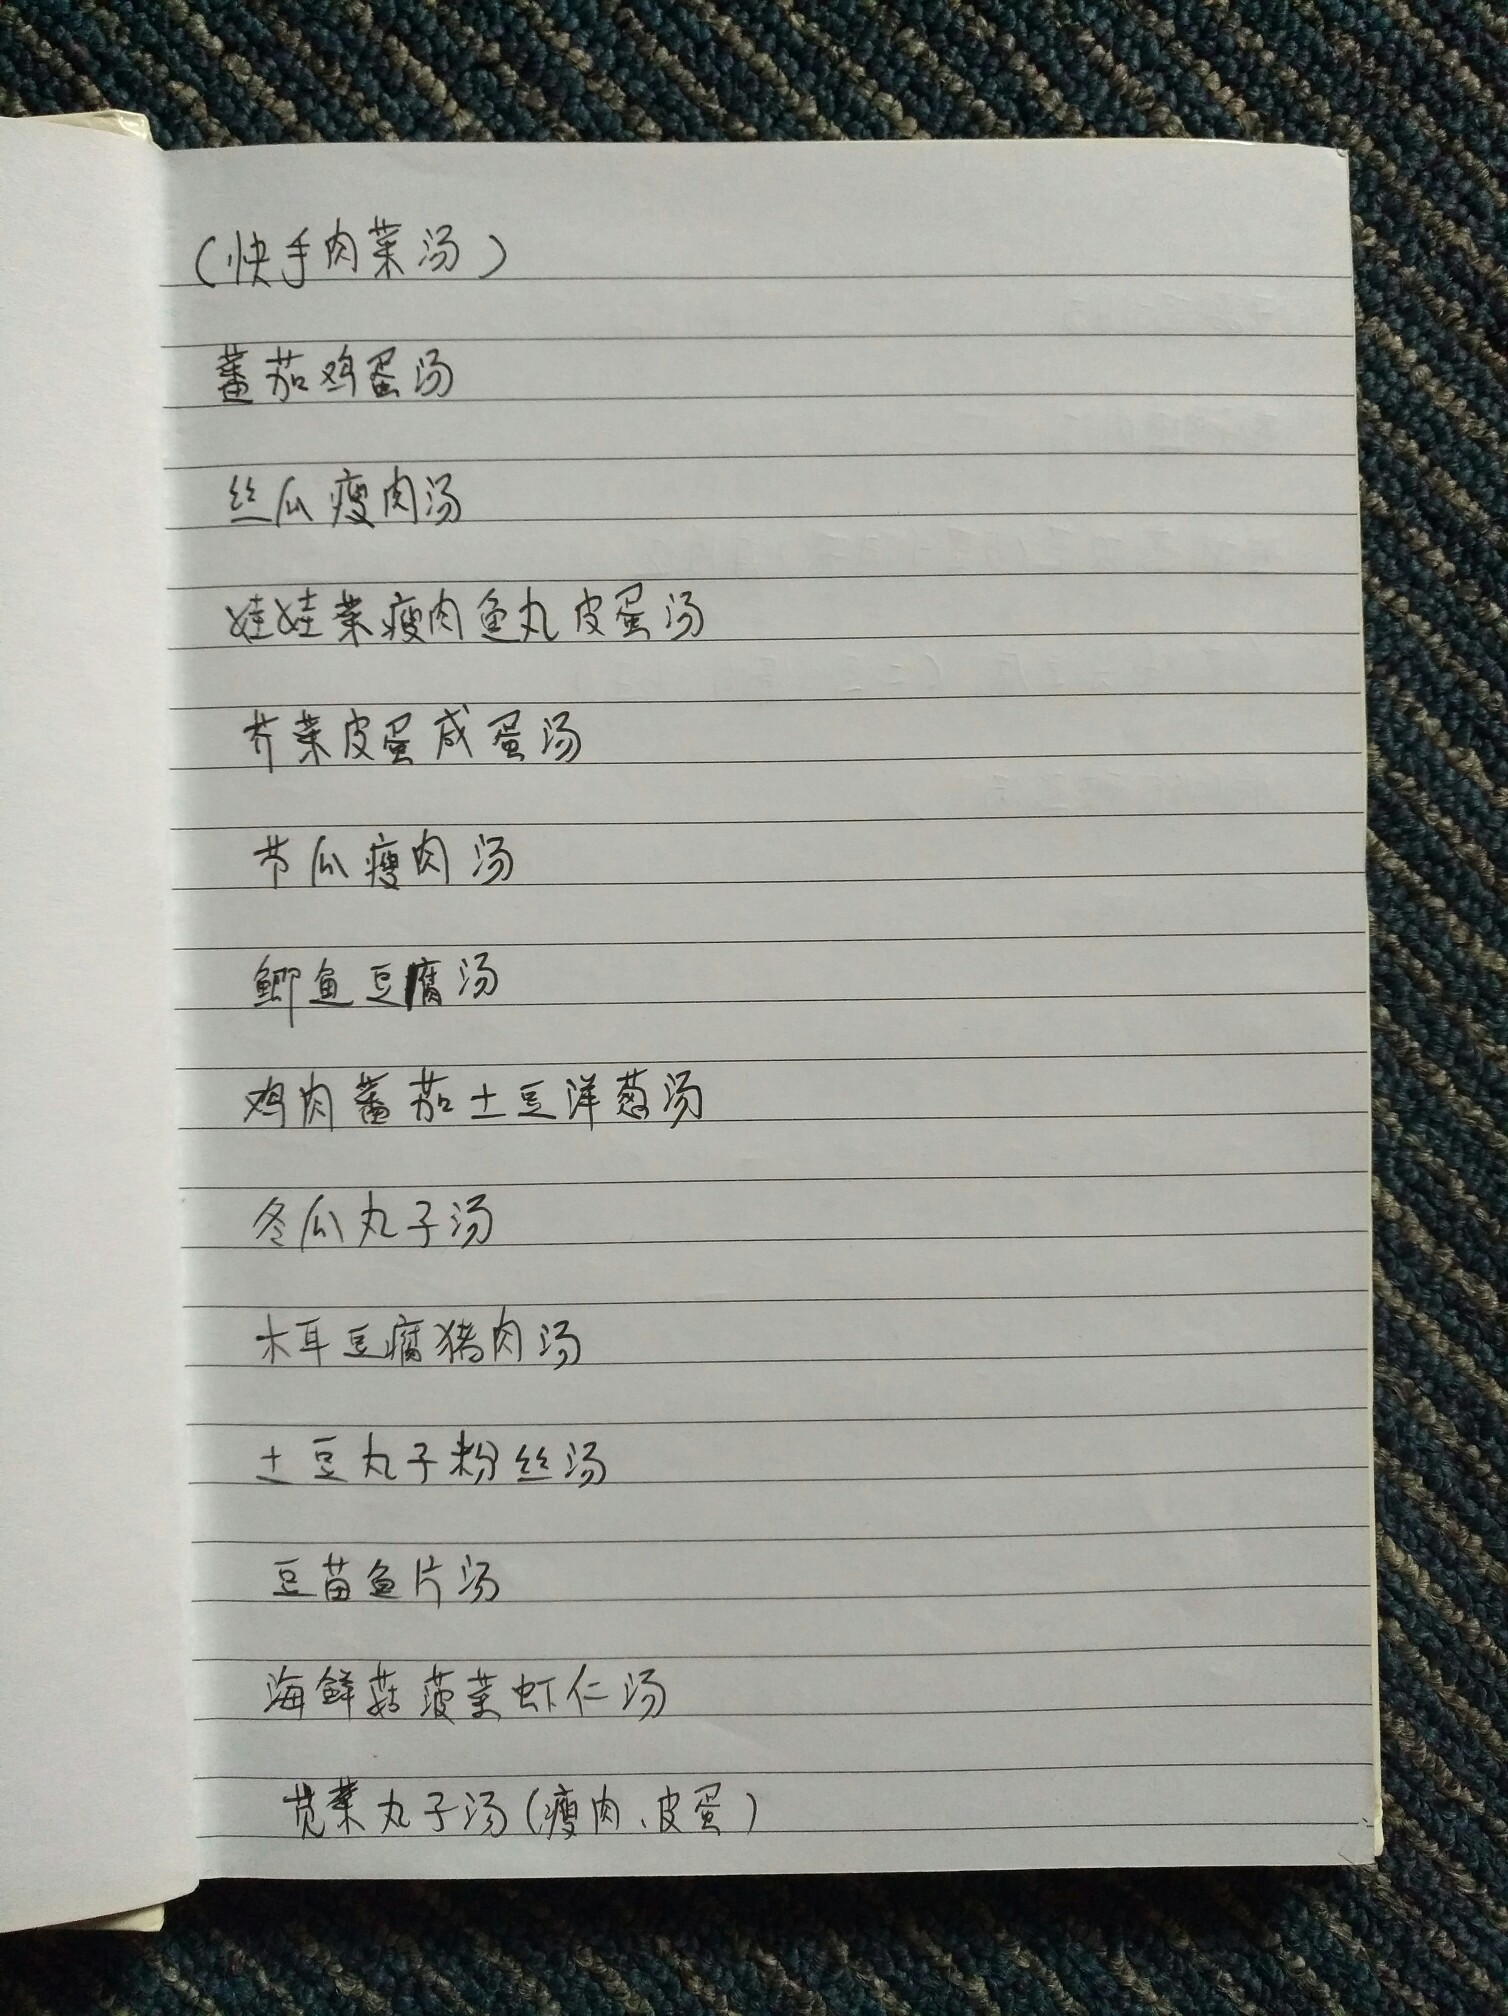 (快手肉菜汤)
蕃茄鸡蛋汤
丝瓜瘦肉汤
娃娃菜瘦肉鱼丸皮蛋汤
芥菜皮蛋咸蛋汤
节瓜瘦肉汤
鲫鱼豆腐汤
鸡肉蕃茄土豆洋葱汤
冬瓜丸子汤
木耳豆腐猪肉汤
土豆丸子粉丝汤
豆苗鱼片汤
海鲜菇菠菜虾仁汤
苋菜丸子汤(瘦肉、皮蛋)